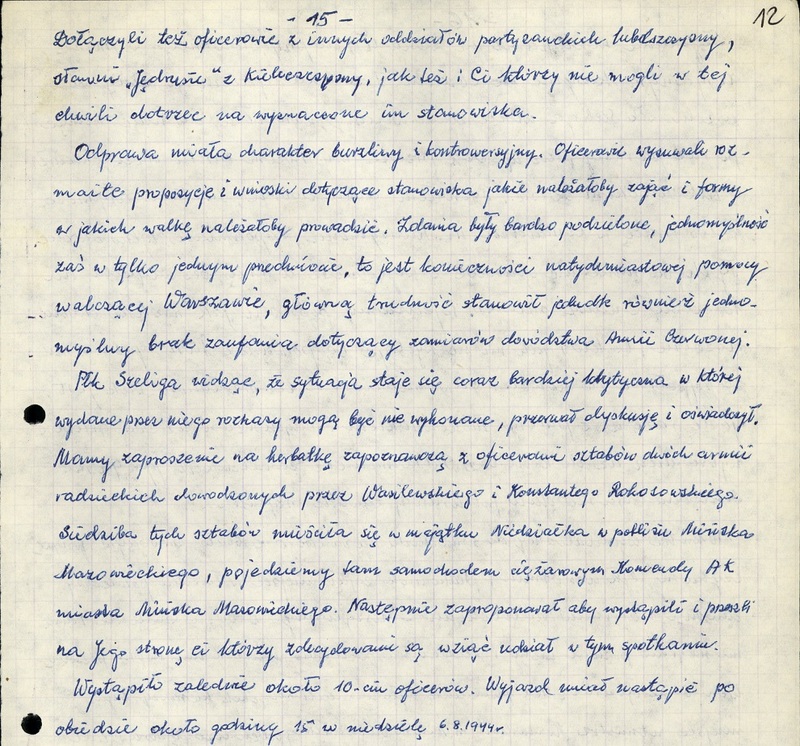 - 15 -
12
Dołączyli też oficerowie z innych oddziałów partyzanckich lubelszczyzny,
sławni „Jędrusie" z Kielecczyzny, jak też i Ci którzy nie mogli w tej
chwili dotrzeć na wyznaczone im stanowiska.
Odprawa miała charakter burzliwy i kontrowersyjny. Oficerowie wysuwali roz-
maite propozycje i wnioski dotyczące stanowiska jakie należałoby zająć i formy
w jakich walkę należałoby prowadzić. Zdania były bardzo podzielone, jednomyślność
zaś w tylko jednym przedmiocie, to jest konieczności natychmiastowej pomocy
walczącej Warszawie, główną trudność stanowił jednak również jedno-
myślny brak zaufania dotyczący zamiarów dowództwa Armii Czerwonej.
Płk Szeliga widząc, że sytuacja staje się coraz bardziej krytyczna w której
wydane przez niego rozkazy mogą być nie wykonane, przerwał dyskusję i oświadczył.
Mamy zaproszenie na herbatkę zapoznawczą z oficerami sztabów dwóch armii
radzieckich dowodzonych przez Wasilewskiego i Konstantego Rokosowskiego.
Siedziba tych sztabów mieściła się w majątku Niedziałka w pobliżu Mińska
Mazowieckiego, pojedziemy tam samochodem ciężarowym Komendy AK
miasta Mińska Mazowieckiego. Następnie zaproponował aby wystąpili i przeszli
na Jego stronę ci którzy zdecydowani są wziąć udział w tym spotkaniu.
Wystąpiło zaledwie około 10-ciu oficerów. Wyjazd miał nastąpić po
obiedzie około godziny 15 w niedzielę 6.8.1944r.